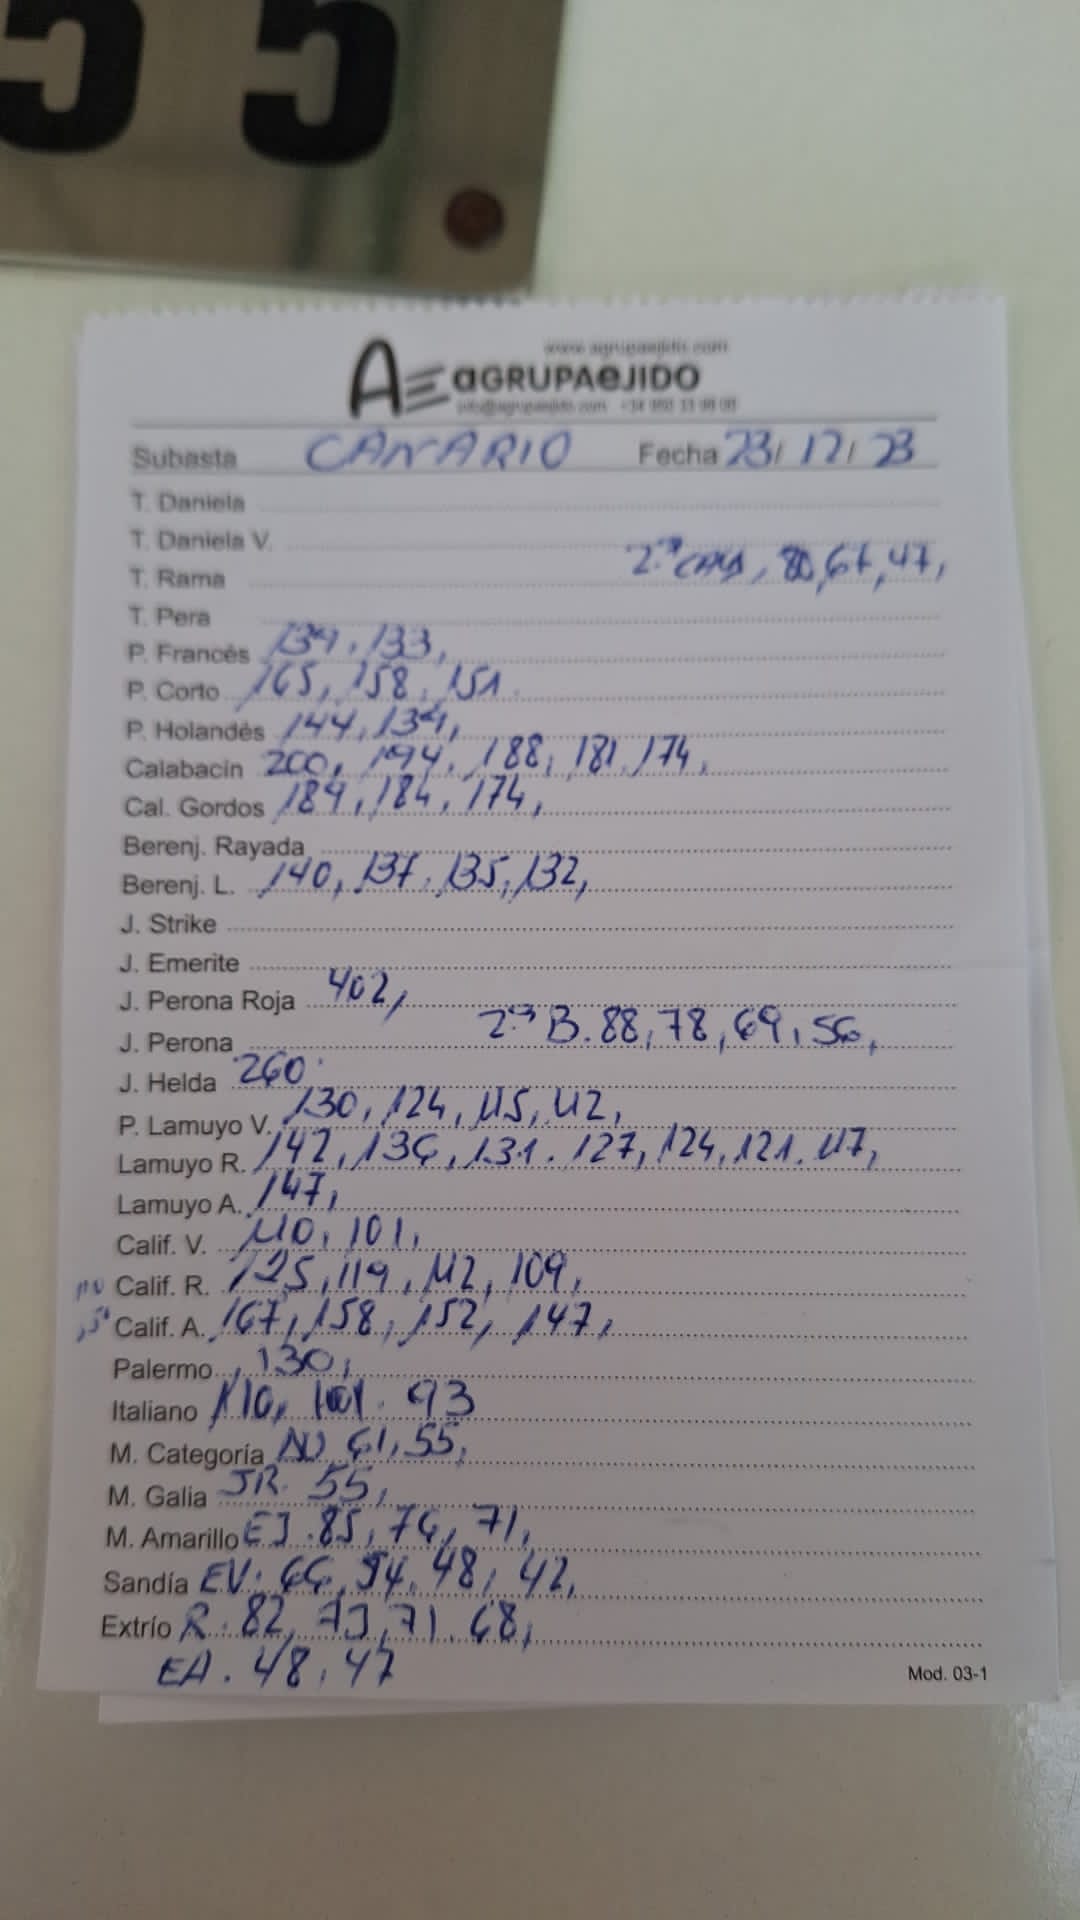 55
www.agrupaejido.com
AE aGRUPAeJIDO
info@agrupaejido.com
Subasta CANARIO Fecha 23/12/23
T. Daniela
T. Daniela V.
T. Rama 2ª 80, 67, 47,
T. Pera
P. Francés 139, 133,
P. Corto 165, 158, 151.
P. Holandés 144, 139,
Calabacín 200, 194, 188, 181, 174,
Cal. Gordos 189, 184, 174,
Berenj. Rayada
Berenj. L. 140, 137, 135, 132,
J. Strike
J. Emerite
J. Perona Roja 402,
J. Perona 2ª B. 88, 78, 69, 56,
J. Helda 260.
P. Lamuyo V. 130, 124, 115, 112,
Lamuyo R. 142, 136, 131. 127, 124, 121. 117,
Lamuyo A. 147,
Calif. V. 110, 101,
Calif. R. 125, 119, 112, 109,
Calif. A. 167, 158, 152, 147,
Palermo 130,
Italiano 110, 101. 93
M. Categoría 61, 55,
M. Galia JR. 55,
M. Amarillo EJ. 85, 76, 71,
Sandía EV. 66, 54, 48, 42,
Extrío R. 82, 73, 71. 68,
EA. 48, 47
Mod. 03-1